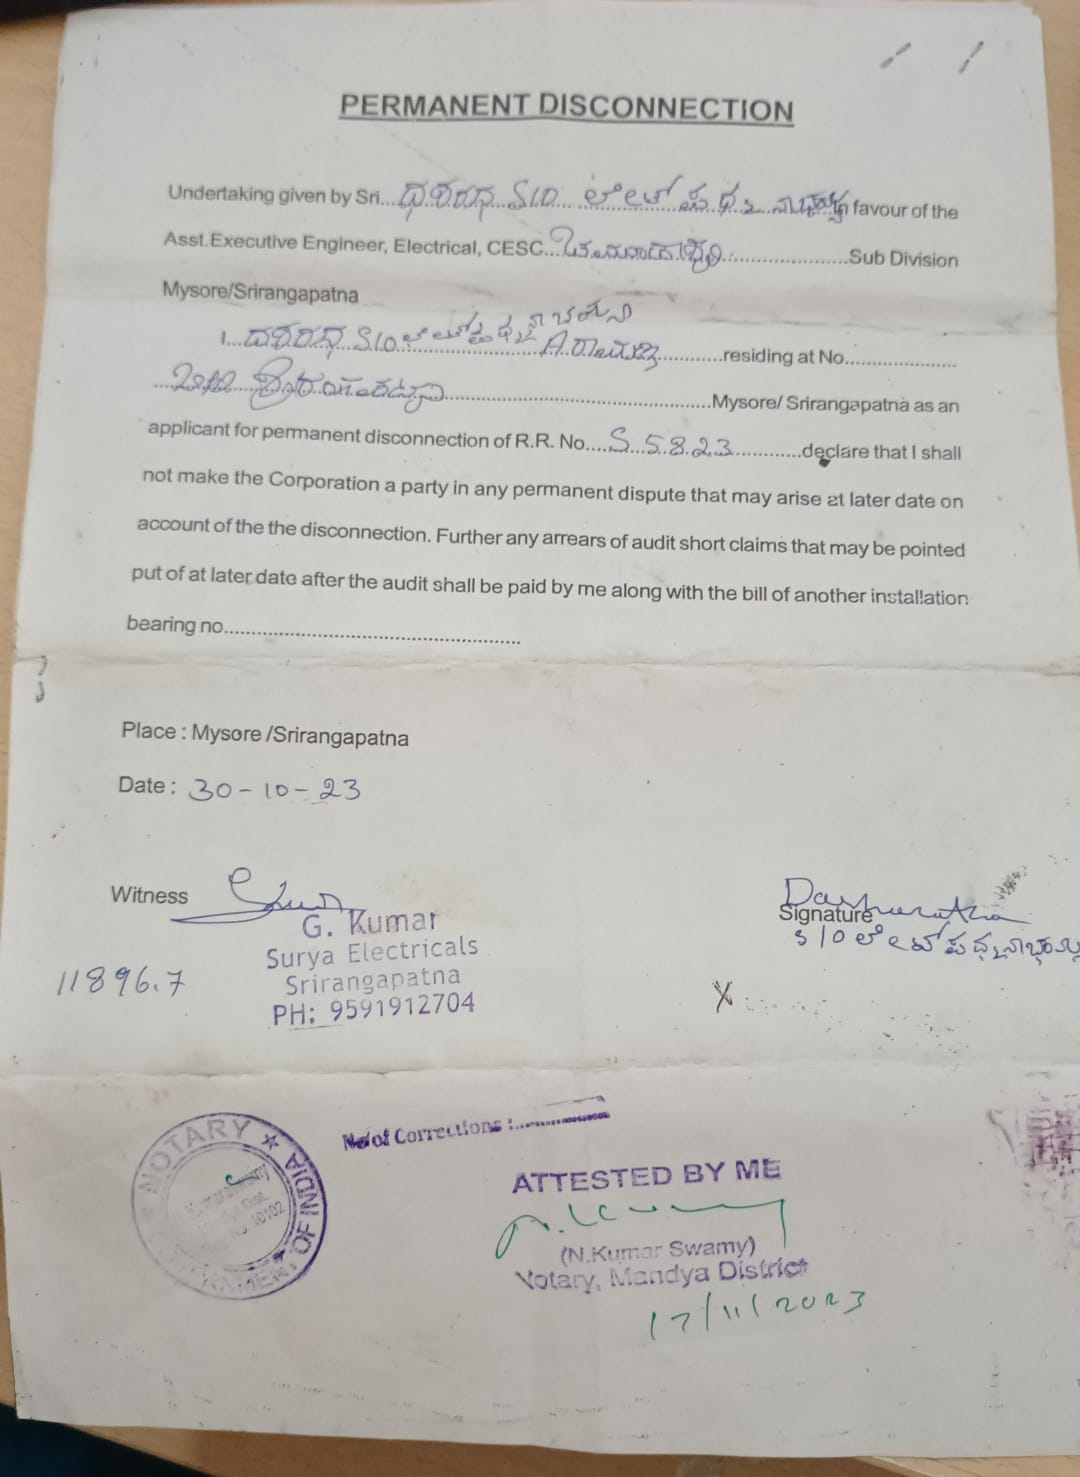 PERMANENT DISCONNECTION
Undertaking given by Sri...ದಶರಥ S/O ಲೇಟ್ ಪದ್ಮನಾಭಯ್ಯ in favour of the
Asst.Executive Engineer, Electrical, CESC...............Sub Division
Mysore/Srirangapatna
I...ದಶರಥ S/O ಲೇಟ್ ಪದ್ಮನಾಭಯ್ಯ............residing at No...................
.................................Mysore/ Srirangapatna as an
applicant for permanent disconnection of R.R. No....S.5823............declare that I shall
not make the Corporation a party in any permanent dispute that may arise at later date on
account of the the disconnection. Further any arrears of audit short claims that may be pointed
put of at later date after the audit shall be paid by me along with the bill of another installation
bearing no......................................................
Place : Mysore /Srirangapatna
Date : 30-10-23
Witness
G. Kumar
Surya Electricals
Srirangapatna
PH: 9591912704
11896.7
Dasharatha
Signature
S/O ಲೇಟ್ ಪದ್ಮನಾಭಯ್ಯ
X
NOTARY
OF INDIA
No of Corrections :....................
ATTESTED BY ME
(N.Kumar Swamy)
Notary, Mandya District
17/11/2023